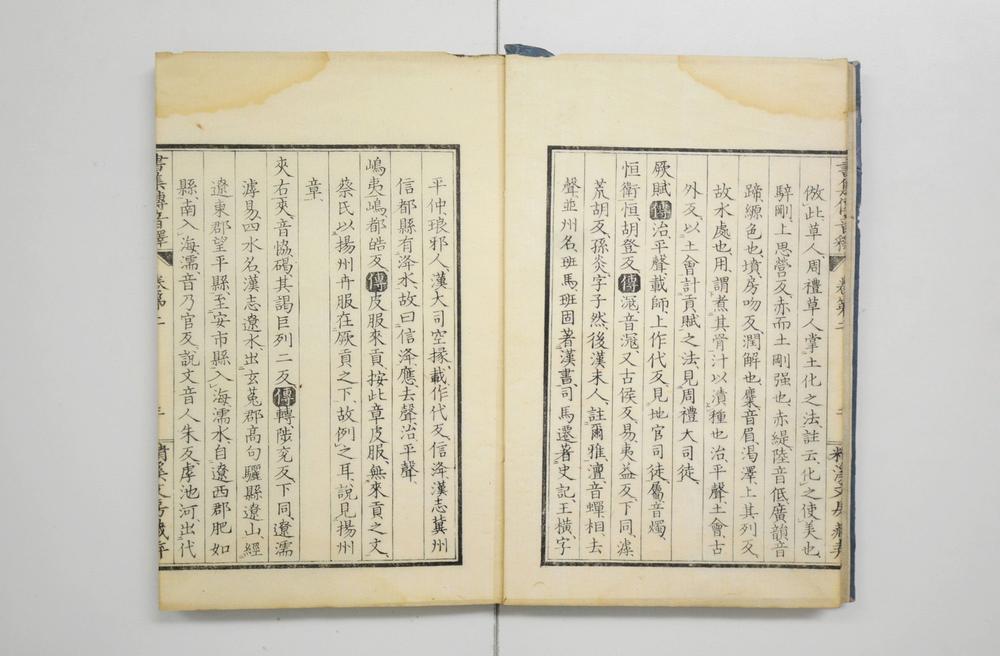 倣此草人周禮草人掌土化之法註云化之使美也
騂剛上思營反赤而土剛强也赤緹陸音低廣韻音
蹄縓色也墳房吻反潤解也麋音眉渴澤上其列反
故水處也用謂煮其骨汁以漬種也治平聲土會古
外反以土會計貢賦之法見周禮大司徒
厥賦傳治平聲載師上作代反見地官司徒屬音燭
恒衛恒胡登反傳滱音滱又古侯反易夷益反下同滹
荒胡反孫炎字子然後漢末人註爾雅澶音蟬相去
聲並州名班馬班固著漢書司馬遷著史記王横字
平仲琅邪人漢大司空掾載作代反信洚漢志冀州
信都縣有洚水故曰信洚應去聲治平聲
嵎夷嵎都皓反傳皮服來貢按此章皮服無來貢之文
蔡氏以揚州卉服在厥貢之下故例之耳說見揚州
章
夾右夾音恊碣其謁巨列二反傳轉陂兖反下同遼濡
滹易四水名漢志遼水出玄菟郡高句驪縣遼山經
遼東郡望平縣至安市縣入海濡水自遼西郡肥如
縣南入海濡音乃官反說文音人朱反虖池河出代
書集傳音釋 卷第二